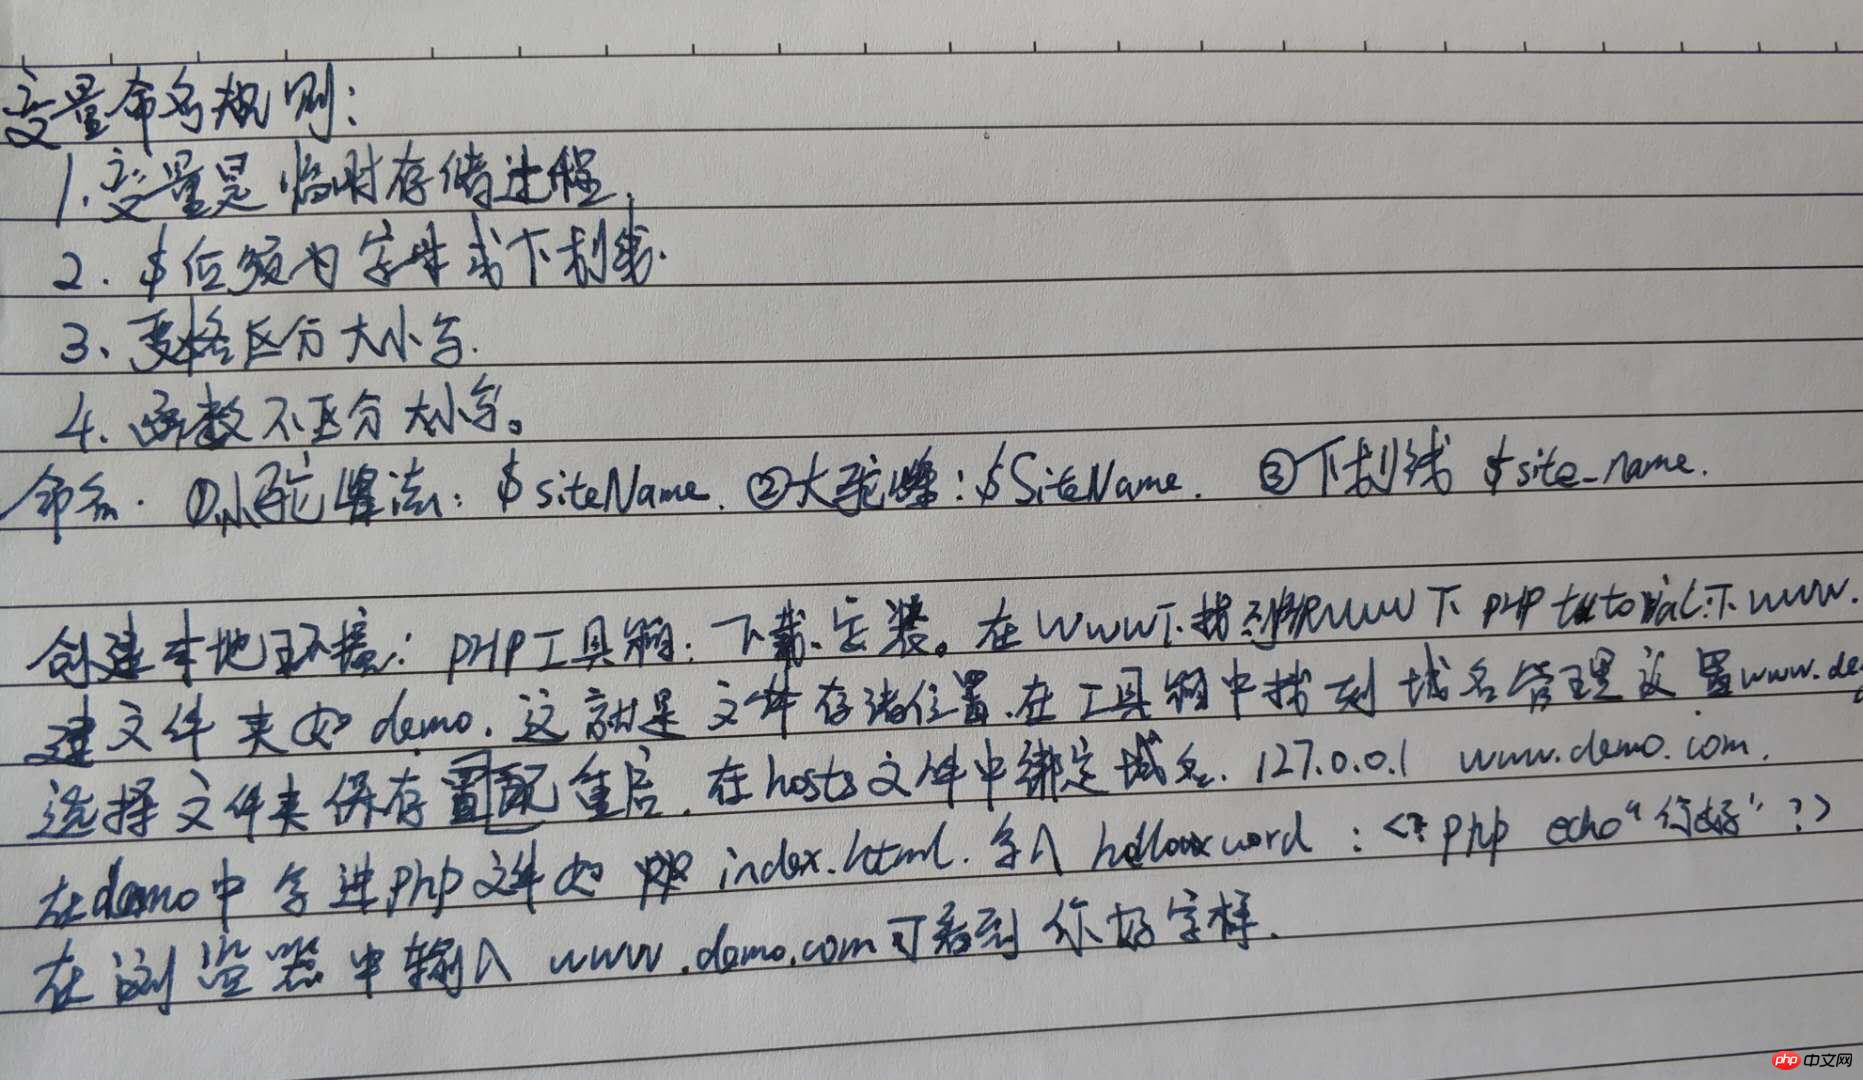 变量命名规则:
1.变量是临时存储过程.
2. $后须为字母或下划线.
3、严格区分大小写.
4、函数不区分大小写。
命名. ①小驼峰法: $siteName. ②大驼峰:$SiteName. ③下划线 $site_name.
创建本地环境: PHP工具箱: 下载、安装。在WWW下找到 WWW下PHP tutorial下www.
建文件夹如demo.这就是文件存储位置.在工具箱中找到域名管理设置www.de
选择文件夹保存配置重启.在hosts文件中绑定域名. 127.0.0.1 www.demo.com.
在demo中写进php文件如 index.html.写入 word : <?php echo“你好” ?>
在浏览器中输入 www.demo.com可看到你好字样.
php 中文网